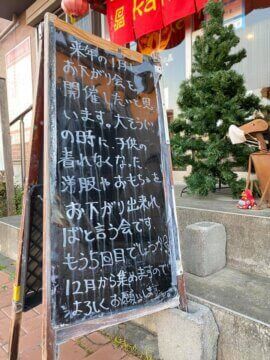 来年の1月に
お下がり会を
開催したいと思
います。大そうじ
の時に、子供の
着れなくなった
洋服やおもちゃを
お下がり出来れ
ばと言う会です
もう5回目でしょうか?
12月から集めますので
よろしくお願いします